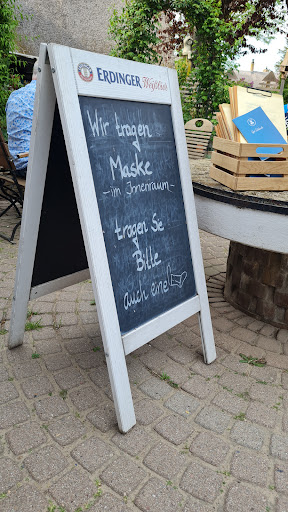 ERDINGER Weißbier
Wir tragen
Maske
- im Innenraum -
tragen Sie
Bitte
auch eine!